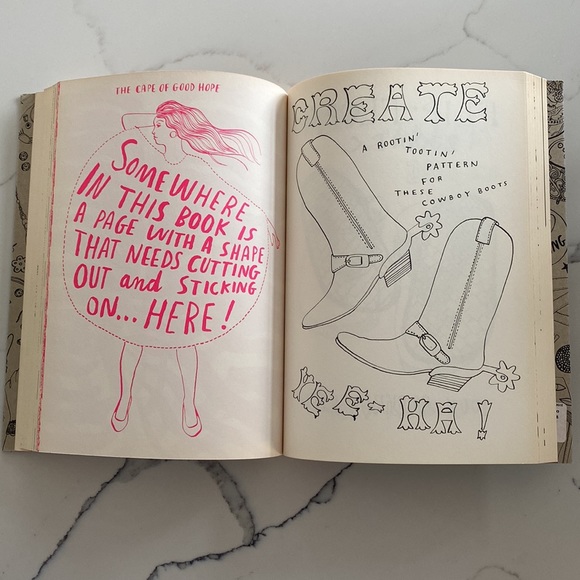 THE CAPE OF GOOD HOPE
SOMEWHERE
IN THIS BOOK IS
A PAGE WITH A SHAPE
THAT NEEDS CUTTING
OUT and STICKING
ON... HERE!
CREATE
A ROOTIN'
TOOTIN'
PATTERN
FOR
THESE
COWBOY BOOTS
YEE-HA!